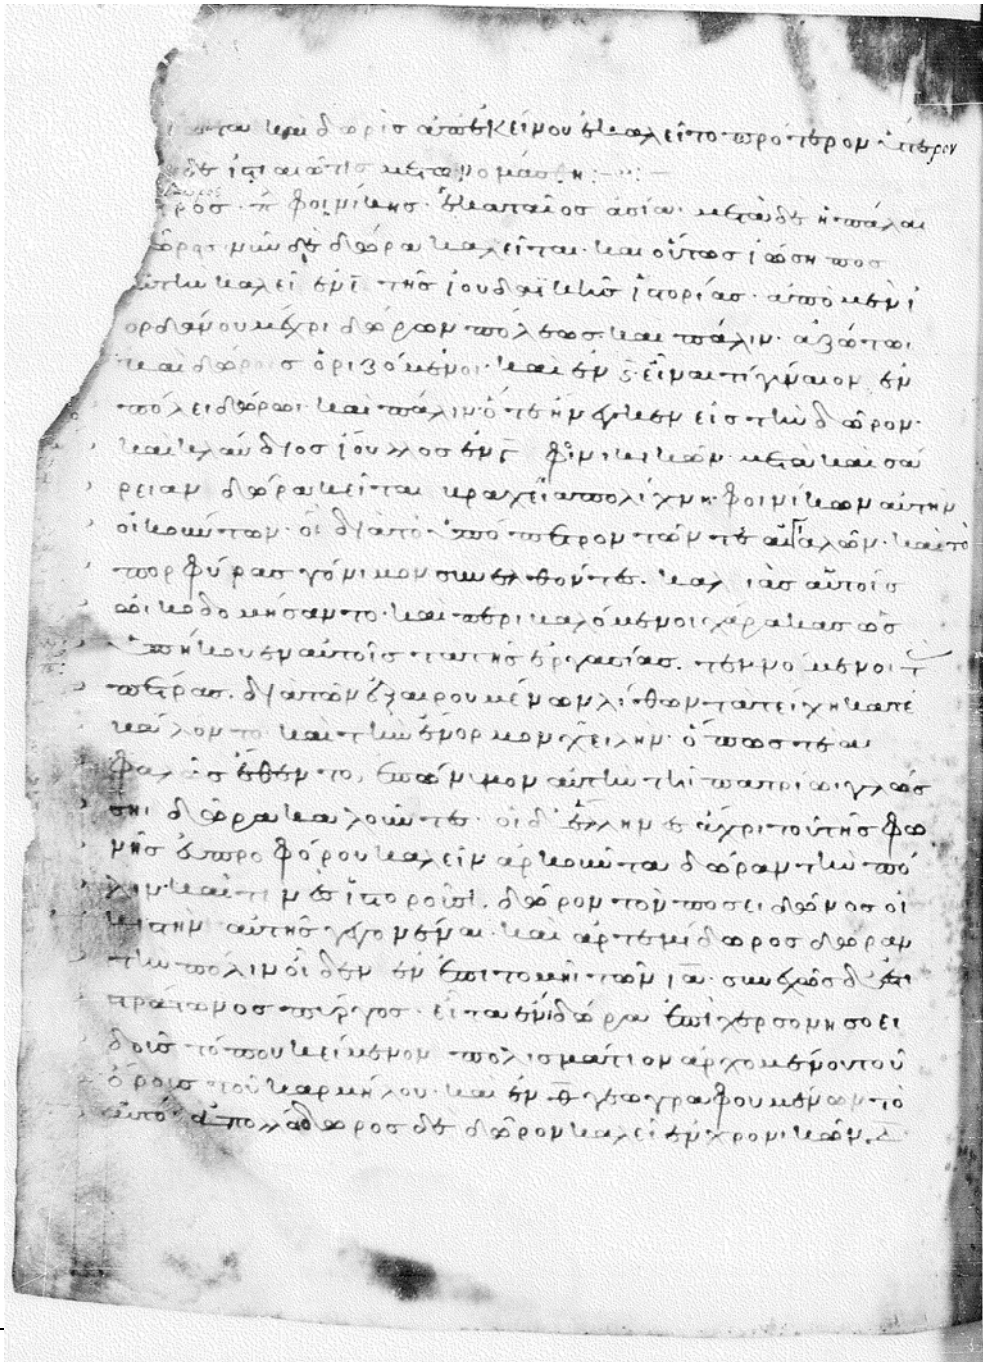 καὶ δωρὶσ ἀπ' ἐκείνου ἐκαλεῖτο πρότερον ὕστερον
δὲ ἱστιαιῶτις μετωνομάσθη :—
Δῶρος
ρος · π φοινίκης · ἑκαταῖος ἀσίαι · μετὰ δὲ ἡ πάλαι
δῶρος · νῦν δὲ δῶρα καλεῖται · καὶ οὕτως ἰώσηπος
αὐτὴν καλεῖ ἐν ε̄ τῆς ἰουδαϊκῆς ἱστορίας · ἀπὸ μὲν ἰ
ορδάνου μέχρι δώρων πόλεως · καὶ πάλιν · ἀζώτωι
καὶ δώροις ὁριζόμενοι · καὶ ἐν ς̄ · εἶναι τὶ γύναιον ἐν
πόλει δώρωι · καὶ πάλιν · ὅτε ἧκεν εἰς τὴν δῶρον ·
καὶ κλαύδιος ἰούλλος ἐν γ̄ φοινικικῶν · μετὰ καισά
ρειαν δῶρα κεῖται βραχεῖα πολίχνη · φοινίκων αὐτὴν
οἰκούντων · οἳ διὰ τὸ ὑπόπετρον τῶν τε αἰγιαλῶν · καὶ τὸ
πορφύρας γόνιμον συνελθόντες · καλιὰς αὑτοῖς
ὠικοδομήσαντο · καὶ περιβαλόμενοι χάρακας ὡς
ὑπήκουεν αὐτοῖς τὰ τῆς ἐργασίας · τεμνόμενοι τ
πέτρας · διὰ τῶν ἐξαιρουμένων λίθων τὰ τείχη κατε
βάλοντο · καὶ τὴν εὔορμον χειλὴν · ὅπως τε ἀ
φαλῶς ἔθεντο, ἐπώνυμον αὐτὴν τῆι πατρίωι γλώσ
σηι δῶρα καλοῦντες · οἱ δ' ἕλληνες ἄχρι τοῦ τῆς φω
νῆς εὐπροφόρου καλεῖν ἀρκοῦνται δῶραν τὴν πό
λιν · καί τινες ἱστοροῦσι · δῶρον τὸν ποσειδῶνος οἰ
κιστὴν αὐτῆς γεγονέναι · καὶ ἀρτεμίδωρος δῶραν
τὴν πόλιν οἶδεν ἐν ἐπιτομῆι τῶν ιᾱ · συνεχῶς δ' ἐστὶ
στράτωνος πύργος · εἶτα ἐνι δῶρα ἐπὶ χερσονησοει
δοῦς τόπου κείμενον πολισμάτιον ἀρχομένου τοῦ
ὄρους τοῦ καρμήλου · καὶ ἐν θ̄ γεωγραφουμένων τὸ
αὐτό · ἀπολλόδωρος δὲ δῶρον καλεῖ ἐν χρονικῶν δ̄